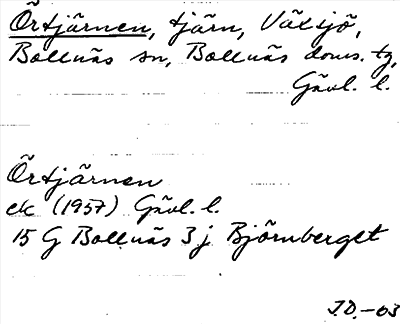 Örtjärnen, tjärn, Växsjö,
Bollnäs sn, Bollnäs doms. tg,
Gävl. l.
Örtjärnen
ek (1957) Gävl. l.
15 G Bollnäs 3 j Björnberget
J.D. -03